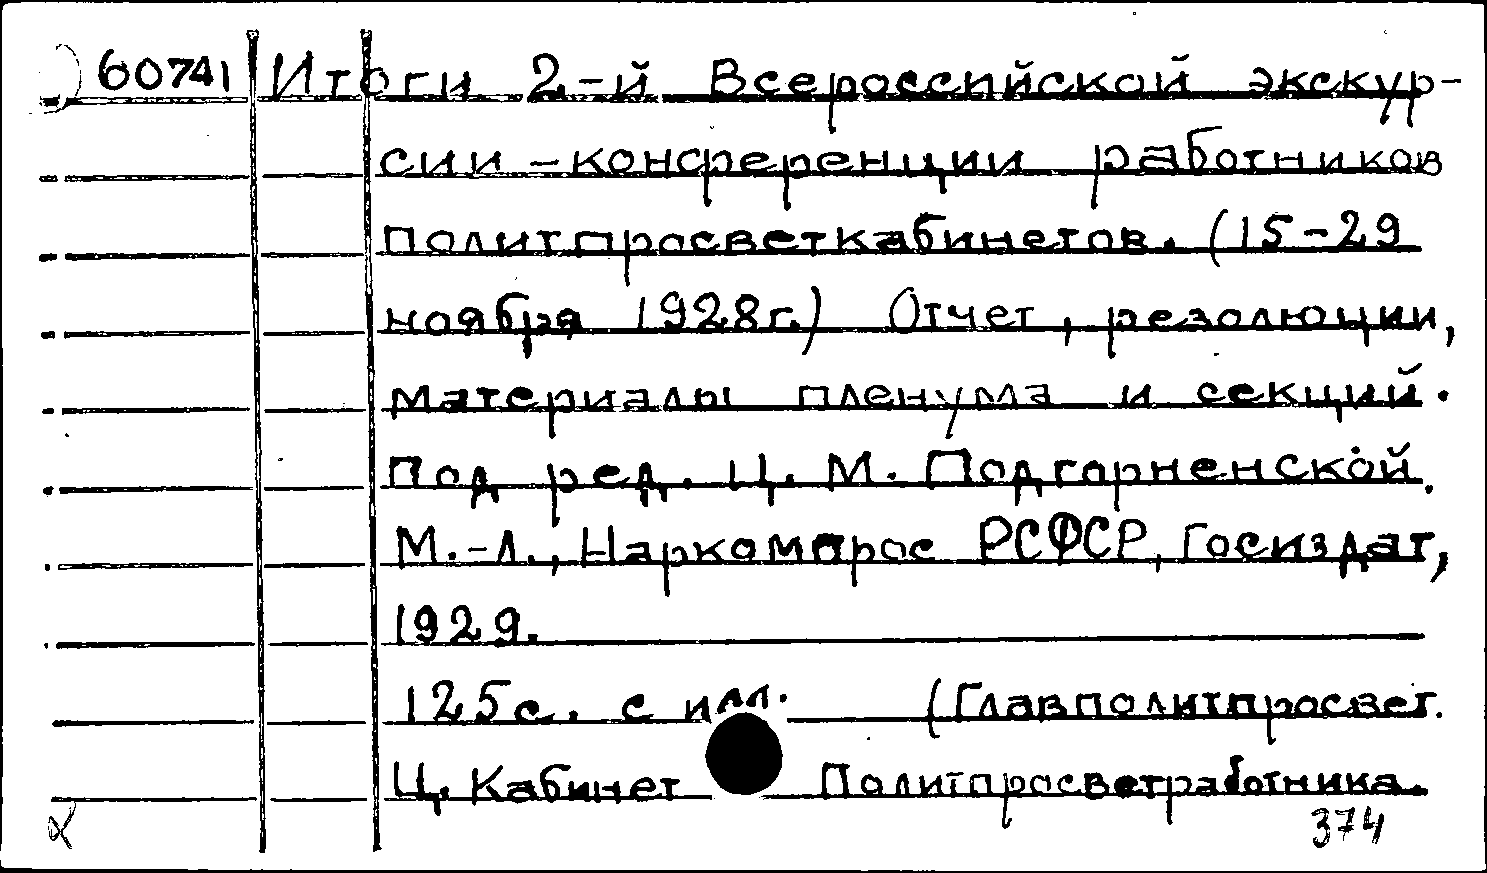 60741 Итоги 2-й Всероссийской экскур-
сии-конференции работников
политпросветкабинетов. (15-29
ноября 1928г.) Отчет, резолюции,
материалы пленума и секций.
Под ред. Ц. М. Подгорненской.
М.-Л., Наркомпрос РСФСР, Госиздат,
1929.
125с. с илл. (Главполитпросвет.
Ц. Кабинет Политпросветработника.
374